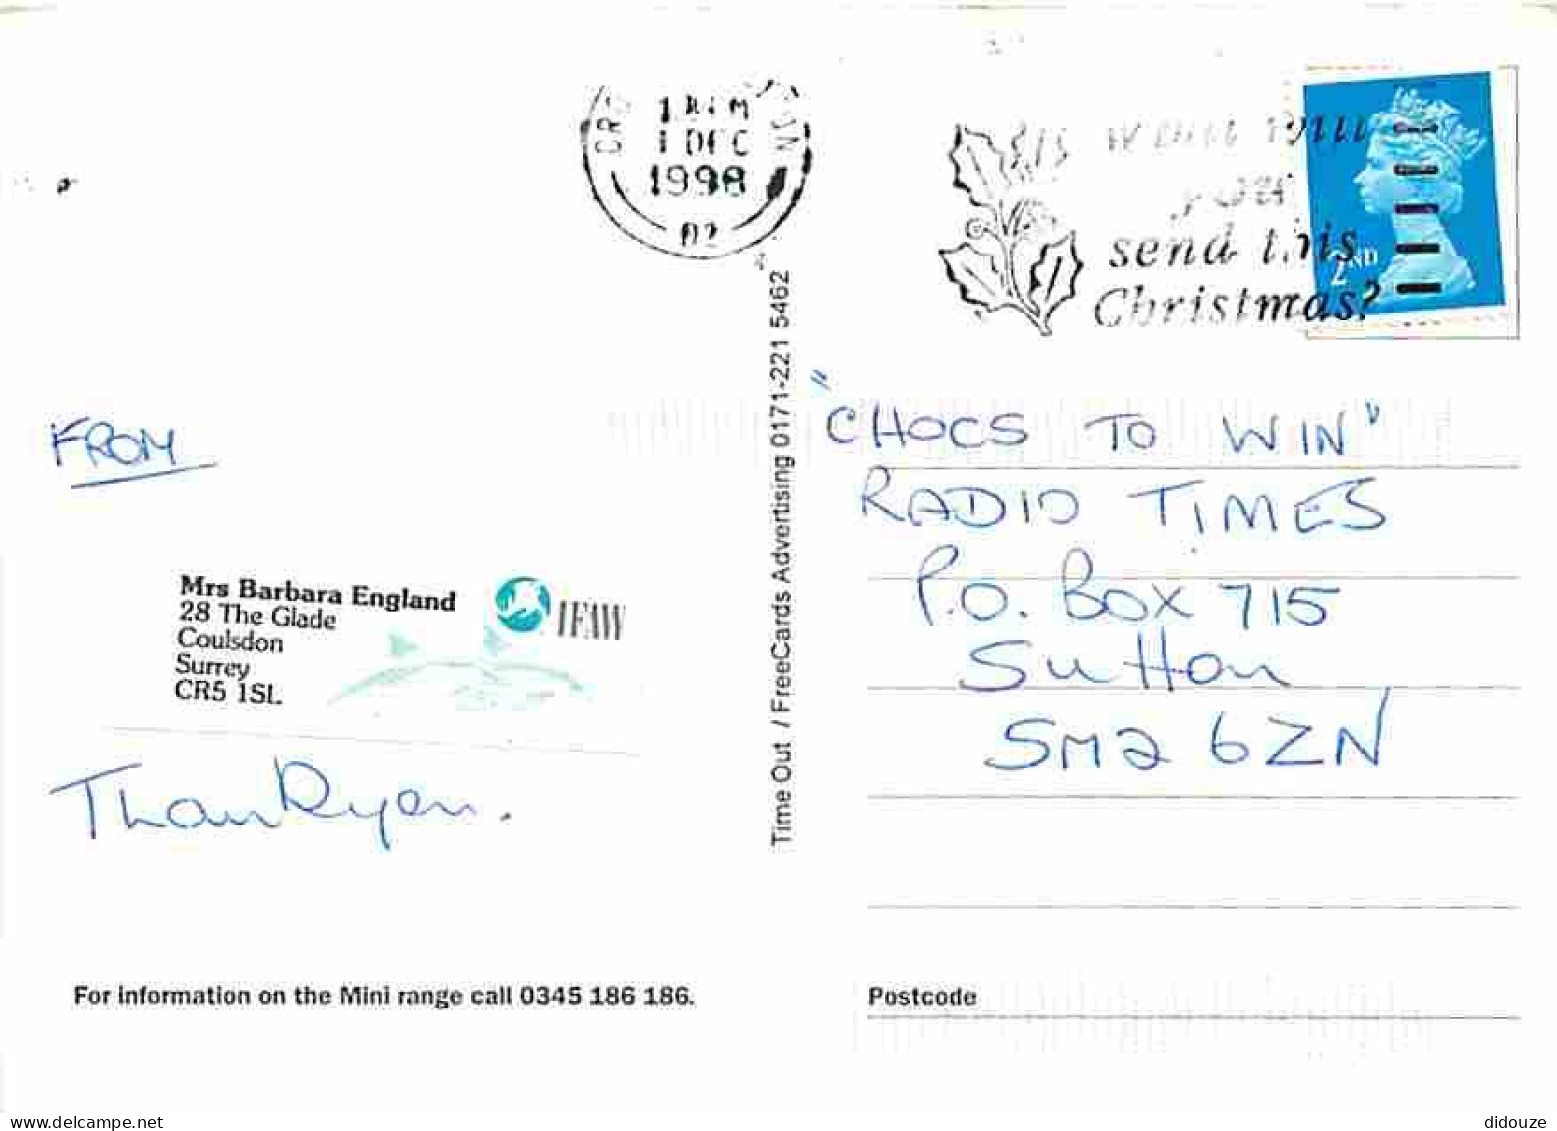 1 DEC
1998
you
send this
Christmas?
2ND
FROM
Mrs Barbara England
28 The Glade
Coulsdon
Surrey
CR5 1SL
IFAW
Thankyou.
For information on the Mini range call 0345 186 186.
Time Out / FreeCards Advertising 0171-221 5462
"CHOCS TO WIN"
RADIO TIMES
P.O. BOX 715
Sutton
SM2 6ZN
Postcode
delcampe.net
didouze